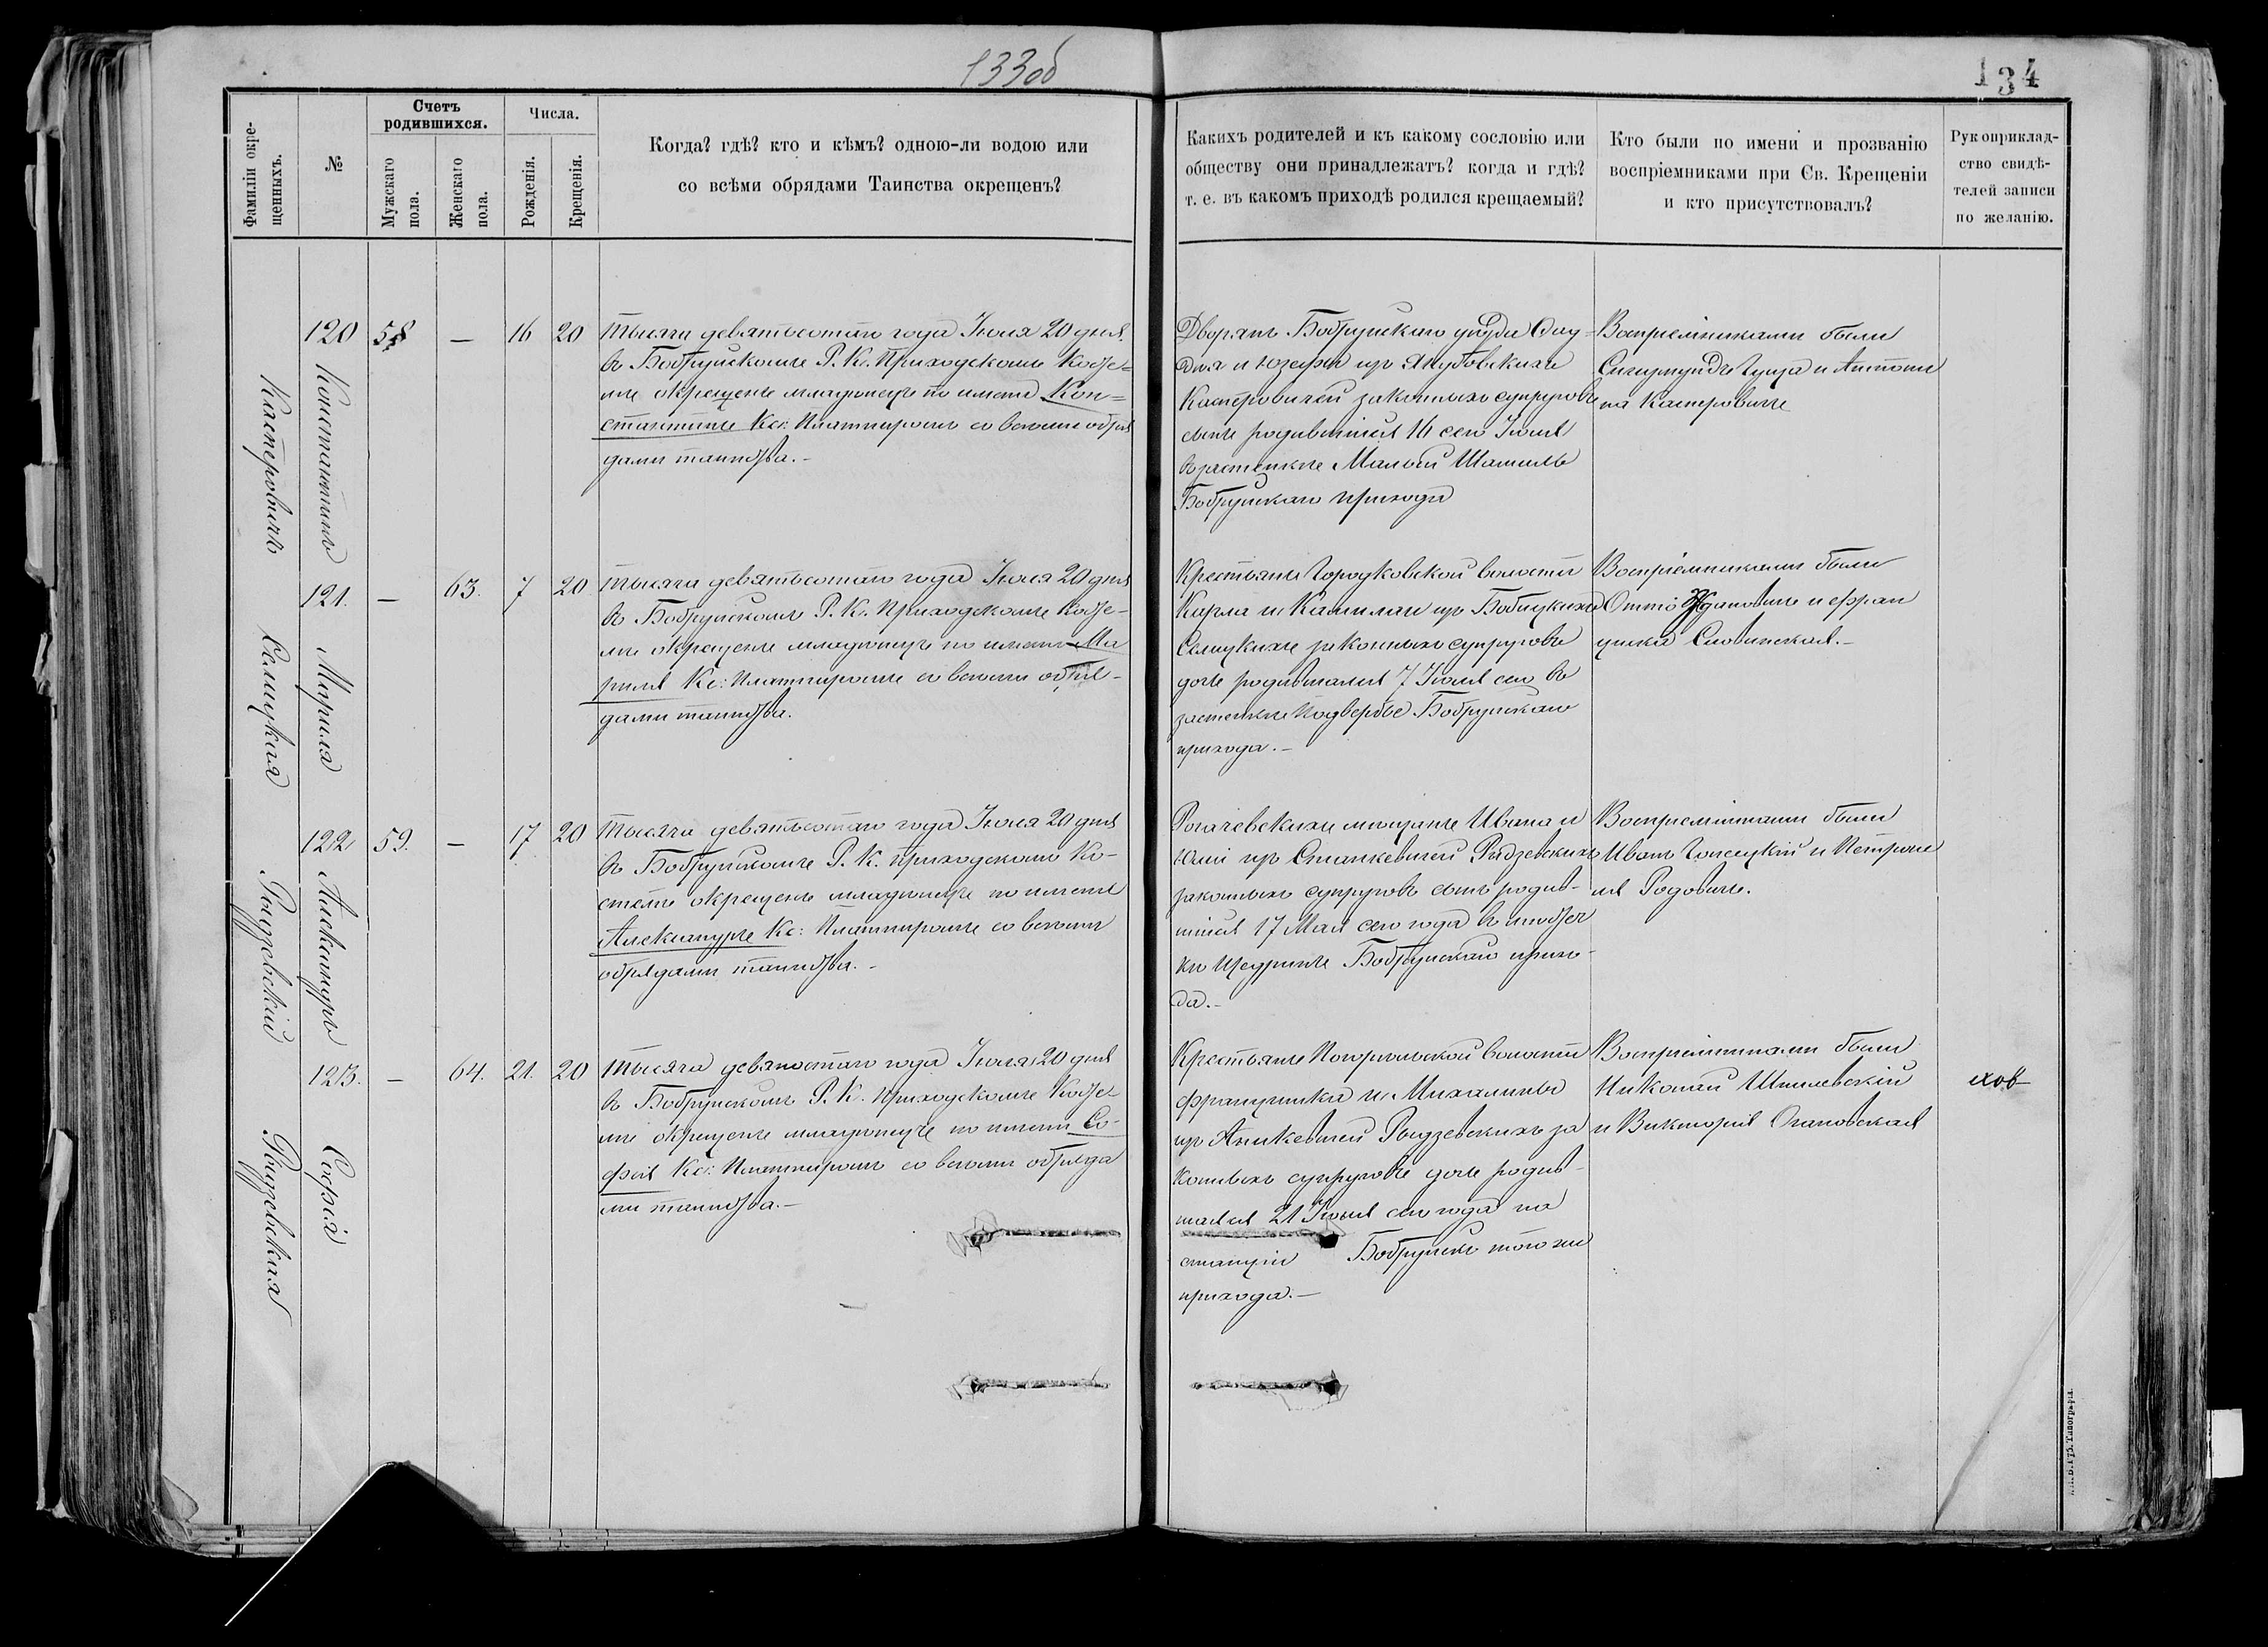 133 об
134
Фамиліи окре-
щенныхъ.
№
Счетъ
родившихся.
Мужскаго
пола.
Женскаго
пола.
Числа.
Рожденія.
Крещенія.
Когда? гдѣ? кто и кѣмъ? одною-ли водою или
со всѣми обрядами Таинства окрещенъ?
Какихъ родителей и къ какому сословію или
обществу они принадлежатъ? когда и гдѣ?
т. е. въ какомъ приходѣ родился крещаемый?
Кто были по имени и прозванію
воспріемниками при Св. Крещеніи
и кто присутствовалъ?
Рукоприклад-
ство свидѣ-
телей записи
по желанію.
Касперовичъ
120
Константинъ
58
—
16
20
Тысяча девятьсотаго года Іюля 20 дня
въ Бобруйскомъ Р. К. Приходскомъ Косте-
лѣ окрещенъ младенецъ по имени Кон-
стантинъ Кс: Платпиромъ со всеми обря
дами таинства.-
Дворянъ Бобруйскаго уѣзда
и Юзефы изъ Якубовскихъ
Касперовичей законныхъ супруговъ
сынъ родившійся 16 сего Іюля
въ застенкѣ Малый
Бобруйскаго прихода
Воспріемниками были
Сигизмундъ Гуща и Антони
на Касперовичъ
Селицкая
121.
Марилія
—
63.
7
20
Тысяча девятьсотаго года Іюля 20 дня
въ Бобруйскомъ Р. К. Приходскомъ Косте-
лѣ окрещенъ младенецъ по имени Ма
рилія Кс: Платпиромъ со всеми обря-
дами таинства.
Крестьянъ Городковской волости
Карла и Камиліи изъ
Селицкихъ законныхъ супруговъ
дочь родившаяся 7 Іюля сего въ
застенкѣ Подвербье Бобруйскаго
прихода.-
Воспріемниками были
Онто Ждановичъ и Фран
цишка Словинская.-
Рыдзевскій
122
Александръ
59.
—
17
20
Тысяча девятьсотаго года Іюля 20 дня
въ Бобруйскомъ Р. К. приходскомъ Ко-
стелѣ окрещенъ младенецъ по имени
Александръ Кс: Платпиромъ со всеми
обрядами таинства.-
Рогачевскихъ мещанъ Ивана и
Юліи изъ Станкевичей Рыдзевскихъ
законныхъ супруговъ сынъ родив-
шійся 17 Мая сего года въ местеч
ке Щедринѣ Бобруйскаго прихо-
да.-
Воспріемниками были
Иванъ и Петроне
ля Родовичъ.
Рыдзевская
123.
Софія
—
64.
21.
20
Тысяча девятьсотаго года Іюля 20 дня
въ Бобруйскомъ Р. К. Приходскомъ Косте-
лѣ окрещенъ младенецъ по имени Со-
фія Кс: Платпиромъ со всеми обряда
ми таинства.-
Крестьянъ волости
Францишка и Михалины
изъ Аникевичей Рыдзевскихъ за
конныхъ супруговъ дочь родив-
шаяся 21 Іюня сего года на
станціи Бобруйскъ того же
прихода.-
Воспріемниками были
Николай Шпилевскій
и Викторія